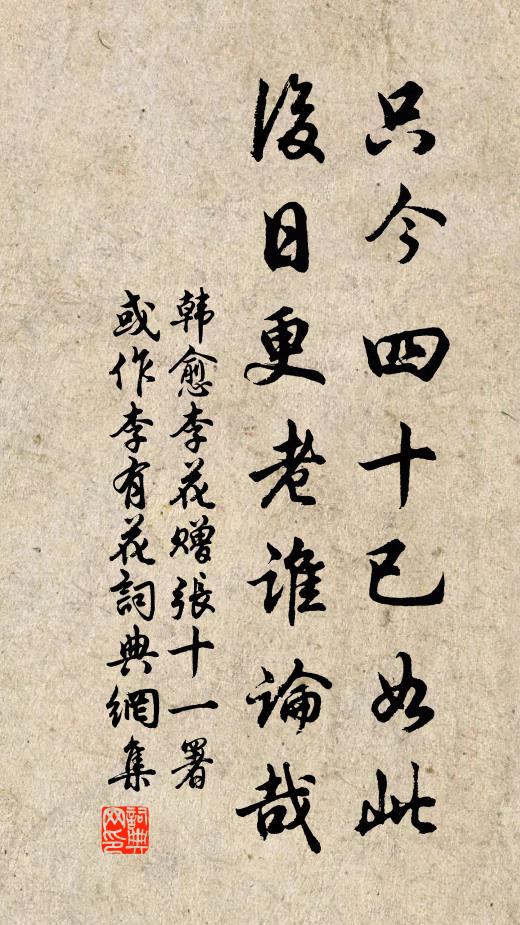 只今四十已如此
後日更老誰論哉
韩愈李花赠張十一署
或作李有花詞典網集
詞典
网印